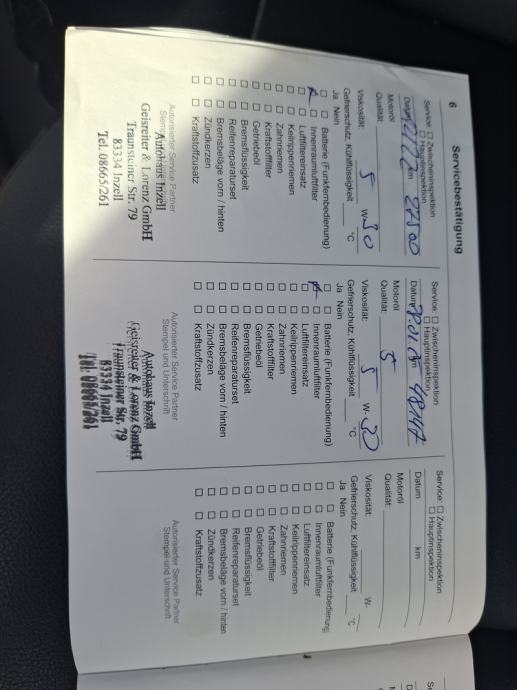 6
Servicebestätigung
Service: Zwischeninspektion
Hauptinspektion
Datum km 27500
Motoröl
Qualität:
Viskosität: 5 W- 30
Gefrierschutz, Kühlflüssigkeit °C
Ja Nein
Batterie (Funkfernbedienung)
Innenraumluftfilter
Luftfiltereinsatz
Keilrippenriemen
Zahnriemen
Kraftstofffilter
Getriebeöl
Bremsflüssigkeit
Reifenreparaturset
Bremsbeläge vorn / hinten
Zündkerzen
Kraftstoffzusatz
Autorisierter Service Partner
Autohaus Inzell
Geisreiter & Lorenz GmbH
Traunsteiner Str. 79
83334 Inzell
Tel. 08665/261
Service: Zwischeninspektion
Hauptinspektion
Datum km 48147
Motoröl
Qualität: 5
Viskosität: 5 W- 30
Gefrierschutz, Kühlflüssigkeit °C
Ja Nein
Batterie (Funkfernbedienung)
Innenraumluftfilter
Luftfiltereinsatz
Keilrippenriemen
Zahnriemen
Kraftstofffilter
Getriebeöl
Bremsflüssigkeit
Reifenreparaturset
Bremsbeläge vorn / hinten
Zündkerzen
Kraftstoffzusatz
Autorisierter Service Partner
Stempel und Unterschrift
Autohaus Inzell
Geisreiter & Lorenz GmbH
Traunsteiner Str. 79
83334 Inzell
Tel. 08665/261
Service: Zwischeninspektion
Hauptinspektion
Datum km
Motoröl
Qualität:
Viskosität: W-
Gefrierschutz, Kühlflüssigkeit °C
Ja Nein
Batterie (Funkfernbedienung)
Innenraumluftfilter
Luftfiltereinsatz
Keilrippenriemen
Zahnriemen
Kraftstofffilter
Getriebeöl
Bremsflüssigkeit
Reifenreparaturset
Bremsbeläge vorn / hinten
Zündkerzen
Kraftstoffzusatz
Autorisierter Service Partner
Stempel und Unterschrift